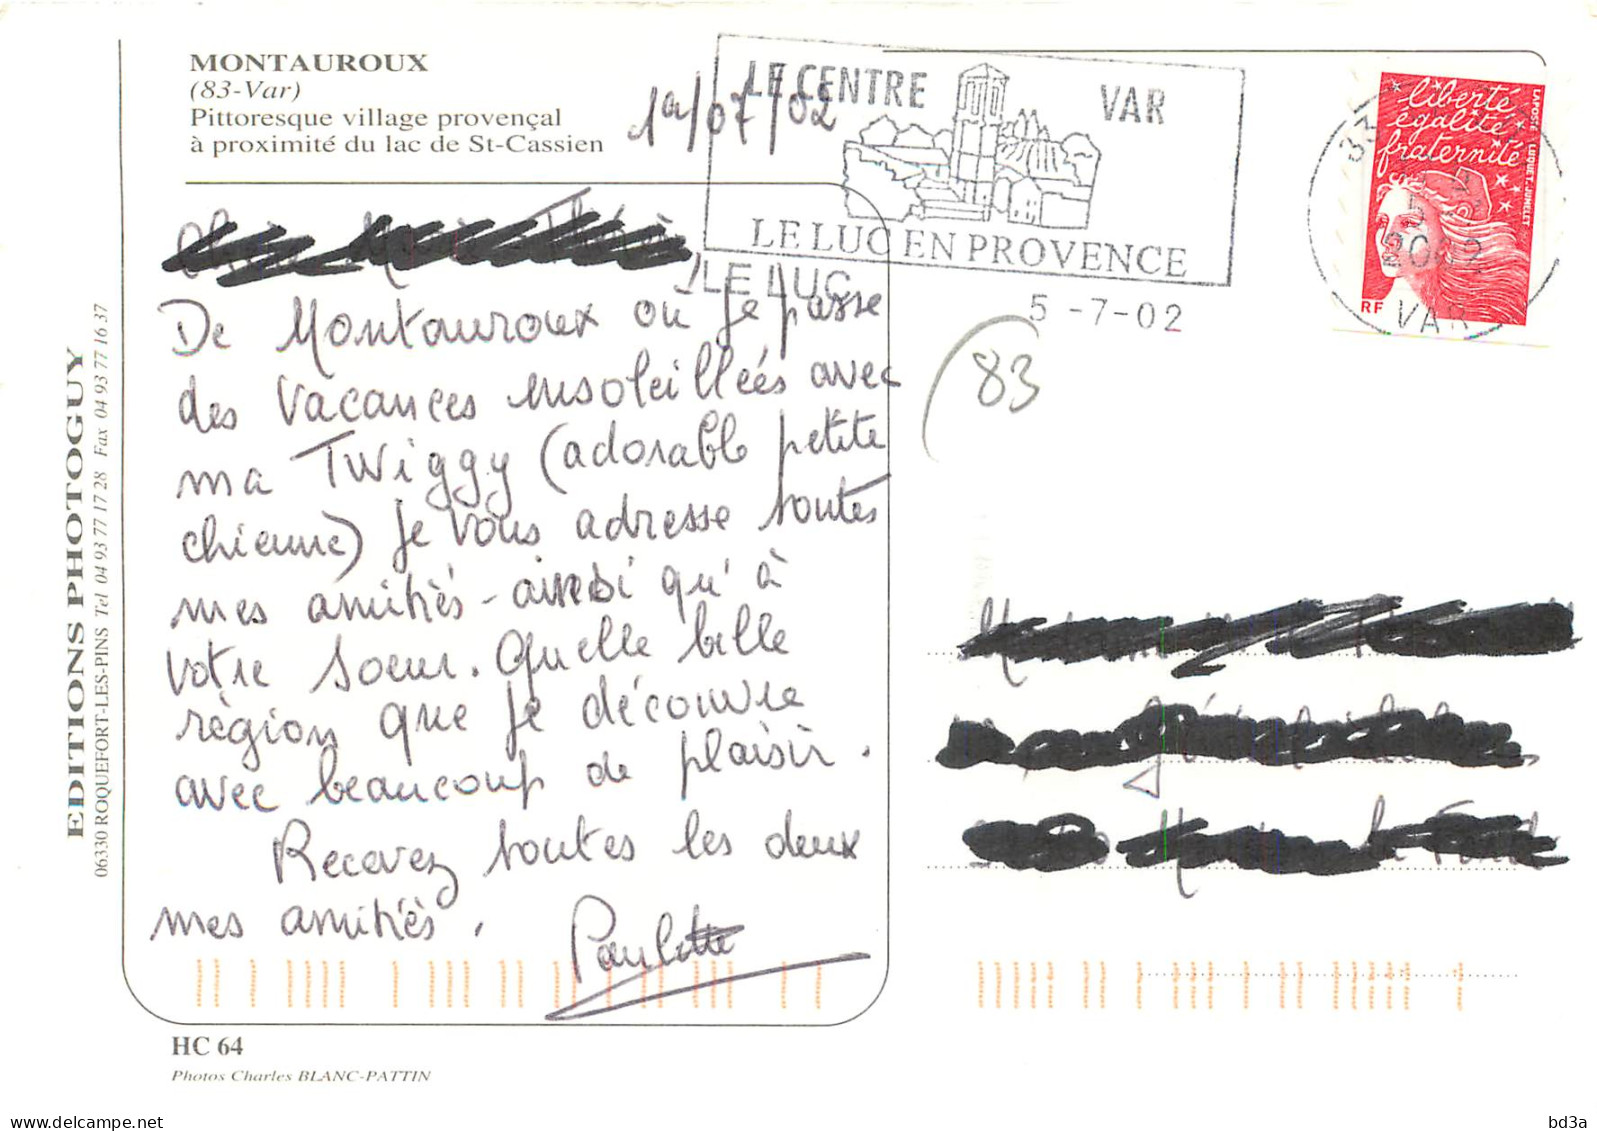 MONTAUROUX
(83-Var)
Pittoresque village provençal
à proximité du lac de St-Cassien
/07/02
LE CENTRE VAR
LE LUC EN PROVENCE
LE LUC
5 -7-02
83
VAR
2002
liberté
égalité
fraternité
LAPOSTE LUQUET.JUMELET
RF
(83
De Montauroux où je passe
des vacances ensoleilleés avec
ma Twiggy (adorable petite
chienne) je vous adresse toutes
mes amitiés - ainsi qu'à
votre soeur. Quelle belle
région que je découvre
avec beaucoup de plaisir.
Recevez toutes les deux
mes amitiés.
Paulette
EDITIONS PHOTOGUY
06330 ROQUEFORT-LES-PINS Tel 04 93 77 17 28 Fax 04 93 77 16 37
HC 64
Photos Charles BLANC-PATTIN
bd3a